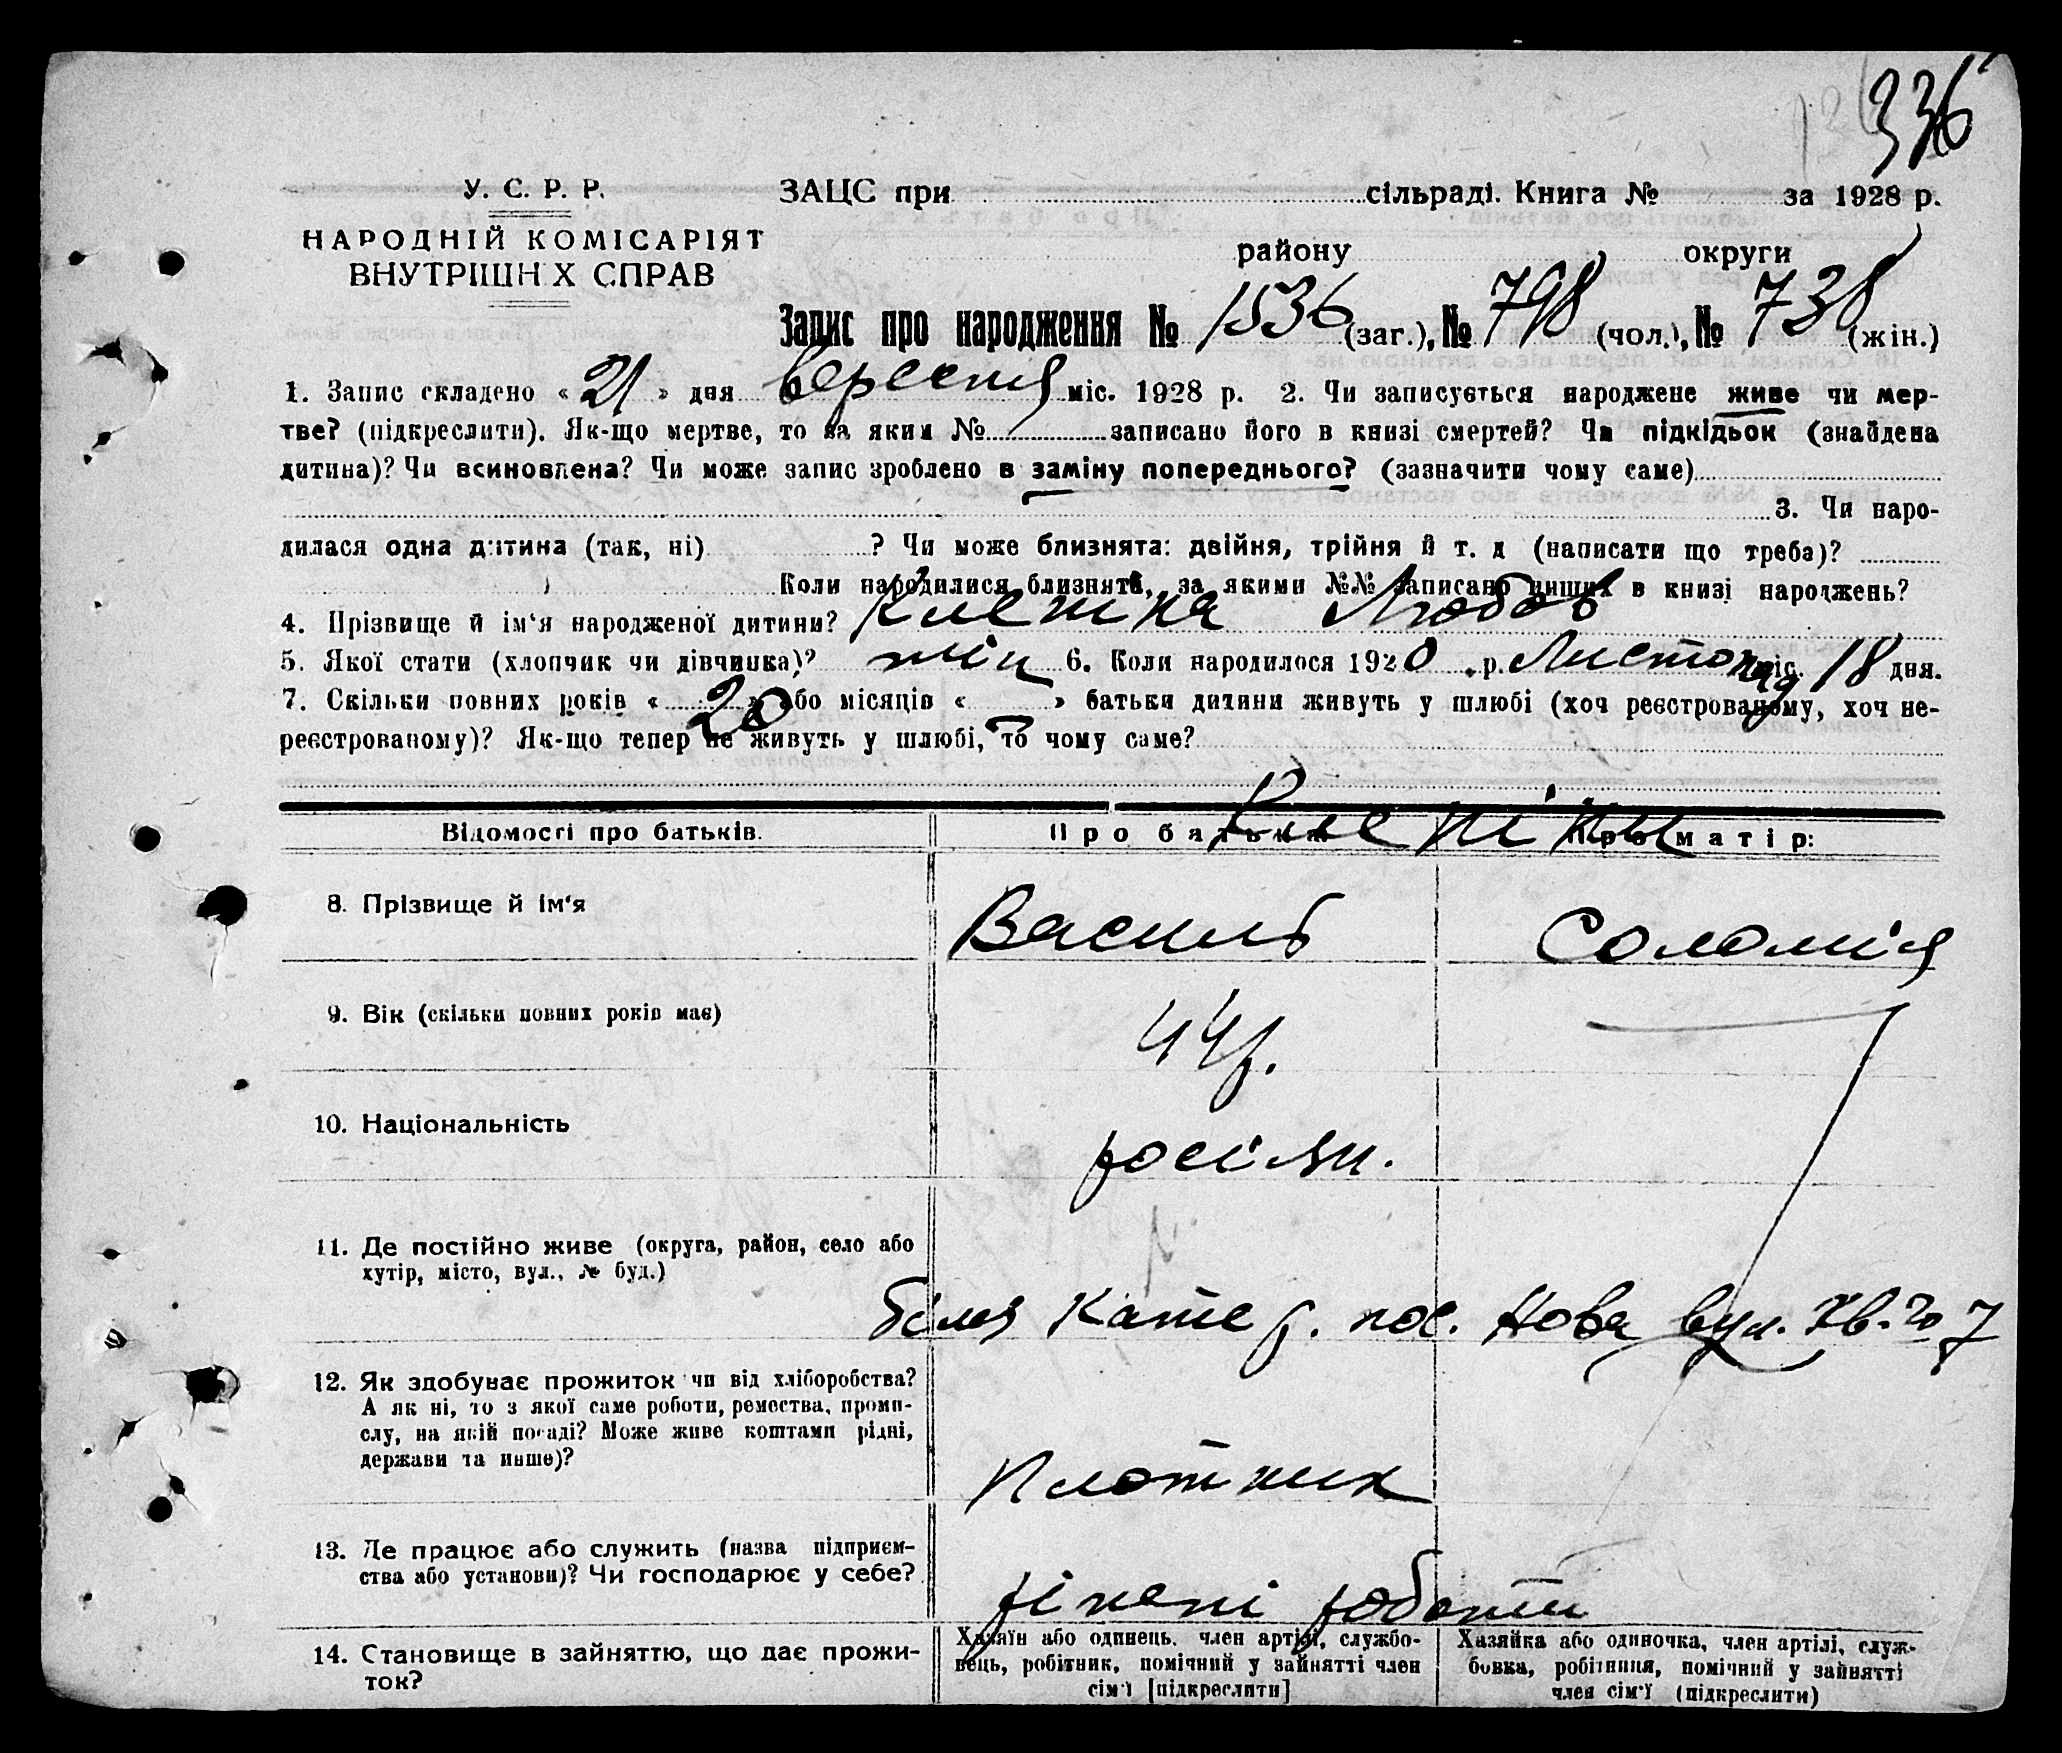 336
У. С. Р. Р.
НАРОДНІЙ КОМІСАРІЯТ
ВНУТРІШНІХ СПРАВ
ЗАЦС при сільраді. Книга № за 1928 р.
району округи
Запис про народження № 1536 (заг.), № 798 (чол.), № 738 (жін.)
1. Запис складено « 21 » дня вересня міс. 1928 р. 2. Чи записується народжене живе чи мер-
тве? (підкреслити). Як-що мертве, то за яким № записано його в книзі смертей? Чи підкідьок (знайдена
дитина)? Чи всиновлена? Чи може запис зроблено в заміну попереднього? (зазначити чому саме)
3. Чи наро-
дилася одна дитина (так, ні) ? Чи може близнята: двійня, трійня й т. д (написати що треба)?
Коли народилися близнята, за якими №№ записано инших в книзі народжень?
4. Прізвище й ім'я народженої дитини? Любов
5. Якої стати (хлопчик чи дівчинка)? жін 6. Коли народилося 1920 р. Листопад міс. 18 дня.
7. Скільки повних років « 20 » або місяців « » батьки дитини живуть у шлюбі (хоч реєстрованому, хоч не-
реєстрованому)? Як-що тепер не живуть у шлюбі, то чому саме?
Відомості про батьків. Про батька Про матір:
8. Прізвище й ім'я Василь Соломія
9. Вік (скільки повних років має) 44 р.
10. Національність росіян.
11. Де постійно живе (округа, район, село або
хутір, місто, вул., № буд.)
біля Катер. пос. Нова вул. 7
12. Як здобуває прожиток чи від хліборобства?
А як ні, то з якої саме роботи, ремества, проми-
слу, на якій посаді? Може живе коштами рідні,
держави та инше)?
Плотник
13. Де працює або служить (назва підприєм-
ства або установи)? Чи господарює у себе?
ріжні роботи
14. Становище в зайняттю, що дає прожи-
ток?
Хазяїн або одинець. член артілі, службо-
вець, робітник, помічний у зайнятті член
сім'ї [підкреслити]
Хазяйка або одиночка, член артілі, служ-
бовка, робітниця, помічний у зайнятті
член сім'ї (підкреслити)